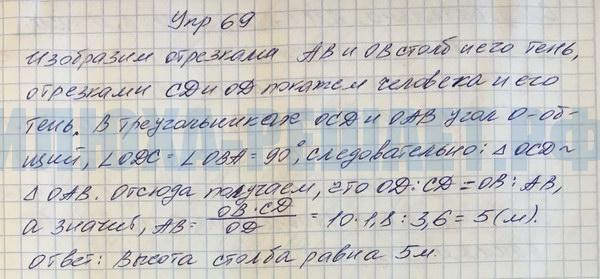 Упр 69
Изобразим отрезками AB и OB столб и его тень,
отрезками CD и OD покажем человека и его
тень. В треугольниках OCD и OAB угол O - об-
щий, ∠ODC = ∠OBA = 90°, следовательно: △OCD ~
△OAB. Отсюда получаем, что OD : CD = OB : AB,
а значит, AB = OB · CD / OD = 10 · 1,8 : 3,6 = 5 (м).
Ответ: Высота столба равна 5 м.